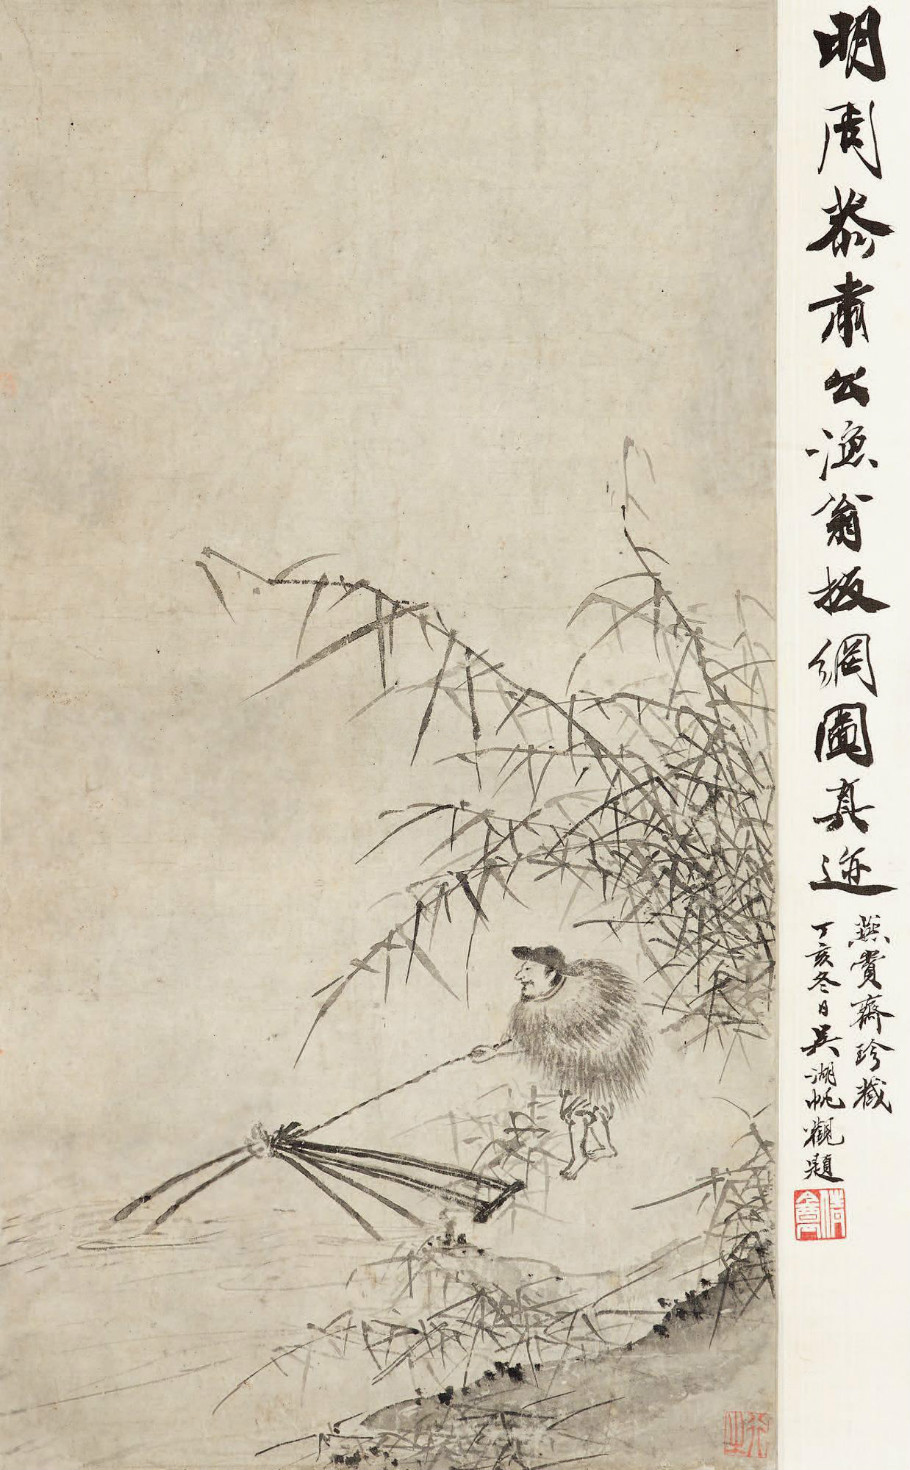 明周恭肅公漁翁扳網圖真迹
燕賞齋珍藏
丁亥冬日吳湖帆觀題
倩盦
行之